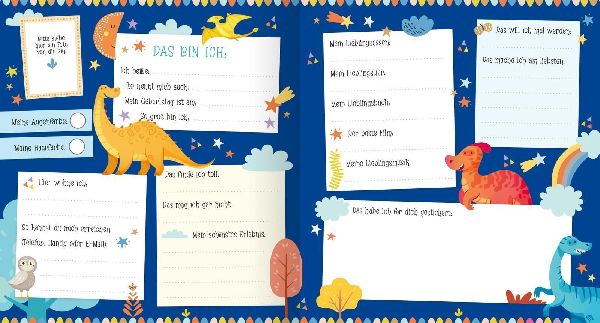 Bitte suche
hier ein Foto
von dir ein
DAS BIN ICH:
Ich heiße:
So nennt mich auch:
Mein Geburtstag ist am:
So groß bin ich:
Meine Augenfarbe:
Meine Haarfarbe:
Hier wohne ich:
So kannst du mich erreichen
(Telefon, Handy oder E-Mail):
Das finde ich toll:
Das mag ich gar nicht:
Mein schönstes Erlebnis:
Mein Lieblingsessen:
Mein Lieblingstier:
Mein Lieblingsbuch:
Der beste Film:
Meine Lieblingsmusik:
Das will ich mal werden:
Das mache ich am liebsten:
Das habe ich für dich gestichert: